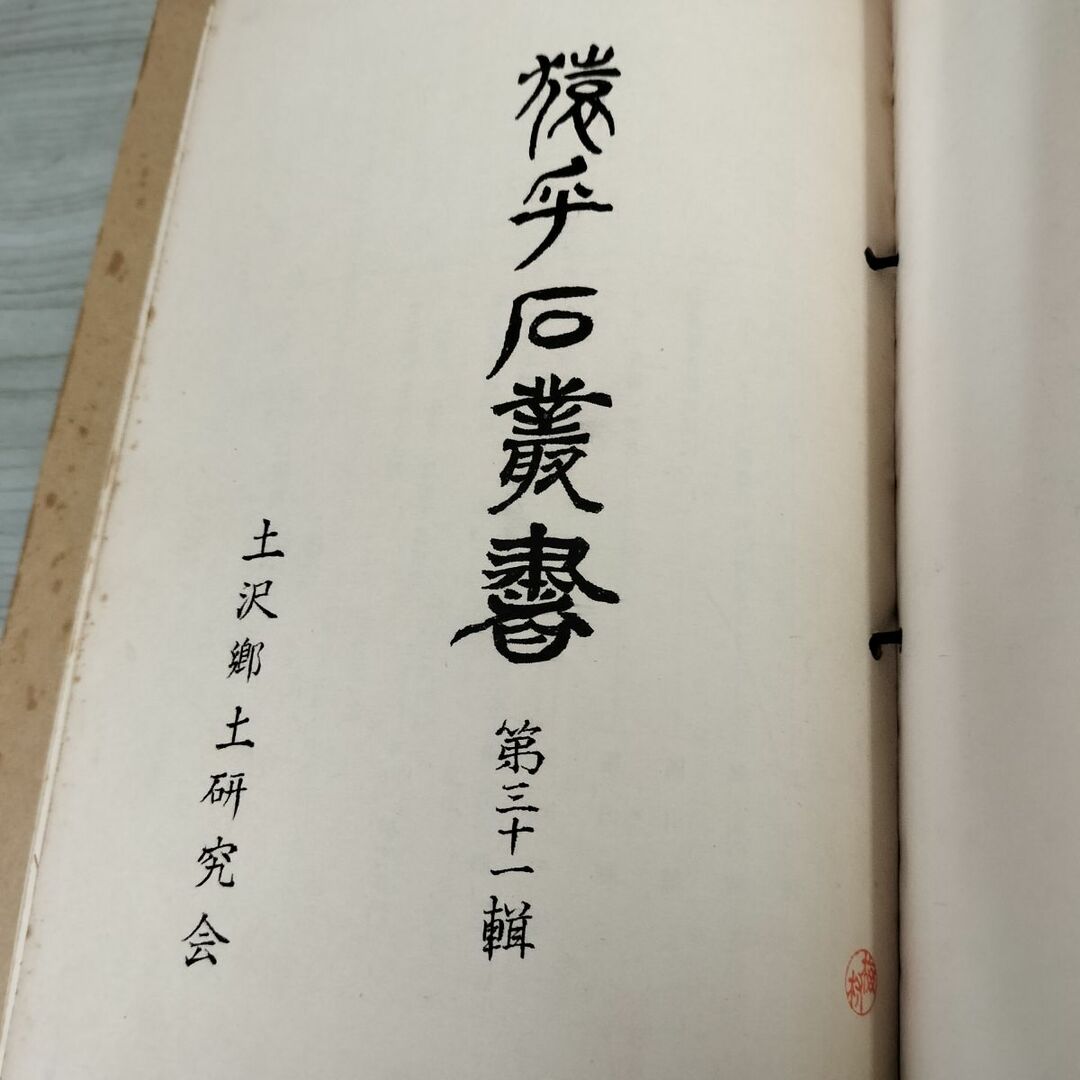 猿乎石叢書 第三十一輯
土沢郷土研究会